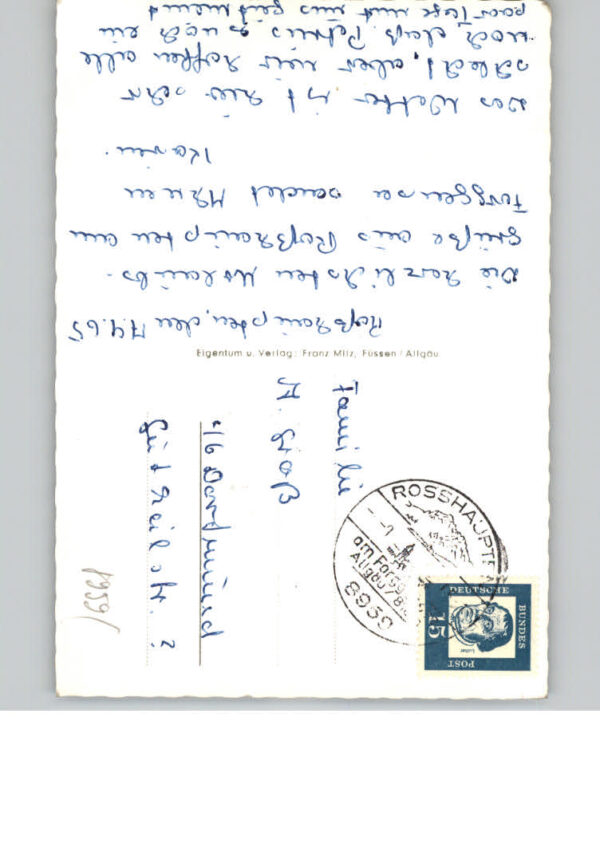 Roßhaupten, den 7.4.65
Die herzlichsten Urlaubs-
grüße aus Roßhaupten am
Forggensee sendet Ihnen
Karin.
Das Wetter ist hier sehr
schlecht, aber wir hoffen alle
noch, daß Petrus es noch ein
paar Tage mit uns gut meint
Eigentum u. Verlag: Franz Milz, Füssen / Allgäu
Familie
A. Groß
46 Dortmund
str. 2
1959/
ROSSHAUPTEN
am Forgg
Allgäu
8959
DEUTSCHE
BUNDES
POST
15
Luther